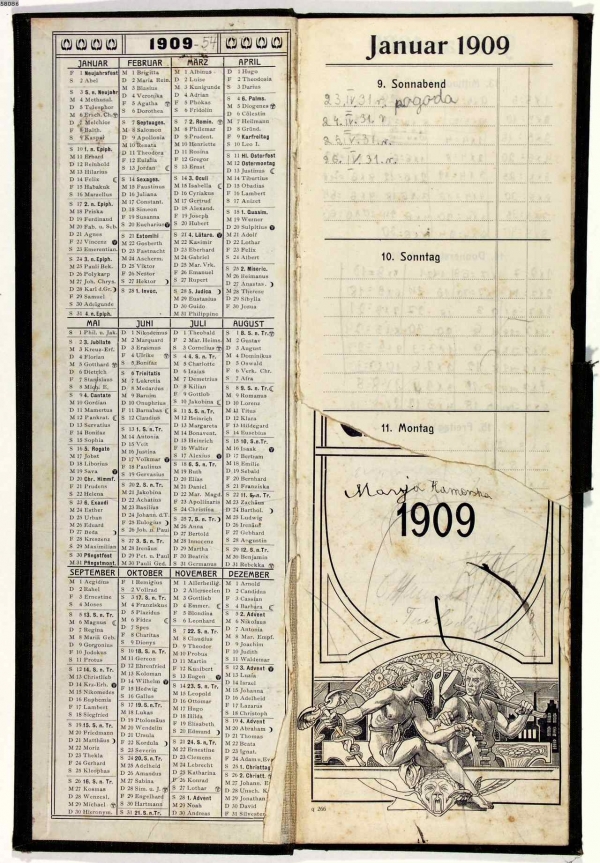 58088
1909-54
JANUAR
F 1 Neujahrsfest
S 2 Abel
S 3 S. n. Neujahr
M 4 Methusal.
D 7 Melchior
F 8 Balth.
S 10 1. n. Epiph.
M 11 Erhard
D 12 Reinhold
M 13 Hilarius
D 14 Felix
F 15 Habakuk
S 16 Marcellus
S 17 2. n. Epiph.
M 18 Priska
D 19 Ferdinand
M 20 Fab. u. Seb.
D 21 Agnes
F 22 Vincenz
S 23 Emerentian.
S 24 3. n. Epiph.
M 25 Pauli Bek.
D 26 Polykarp
M 27 Joh. Chrys.
D 28 Karl d.Gr.
F 29 Samuel
S 30 Adelgunde
S 31 4. n. Epiph.
FEBRUAR
M 1 Brigitta
D 2 Mariä Rein.
M 3 Blasius
D 4 Veronika
F 5 Agatha
S 6 Dorothea
S 7 Septuages.
M 8 Salomon
D 9 Apollonia
M 10 Renata
D 11 Theodora
F 12 Eulalia
S 13 Jordan
S 14 Sexages.
M 15 Faustinus
D 16 Juliana
M 17 Constant.
D 18 Simeon
F 19 Susanna
S 20 Eucharius
S 21 Estomihi
M 22 Gutberth
D 23 Fastnacht
M 24 Ascherm.
D 25 Viktor
F 26 Nestor
S 27 Hektor
S 28 1. Invoc.
MÄRZ
M 1 Albinus
D 2 Luise
M 3 Kunigunde
D 4 Adrian
F 5 Phokas
S 6 Fridolin
S 7 2. Remin.
M 8 Philemar
D 9 Prudent.
M 10 Henriette
D 11 Rosina
F 12 Gregor
S 13 Ernst
S 14 3. Oculi
M 15 Isabella
D 16 Cyriakus
M 17 Gertrud
D 18 Alexand.
F 19 Joseph
S 20 Hubert
S 21 4. Lätare.
M 22 Kasimir
D 23 Eberhard
M 24 Gabriel
D 25 Mar. Vrk.
F 26 Emanuel
S 27 Rupert
S 28 5. Judica
M 29 Eustasius
D 30 Guido
M 31 Philippine
APRIL
D 1 Hugo
F 2 Theodosia
S 3 Darius
S 4 6. Palm.
M 5 Diogenes
D 6 Cölestin
M 7 Heilmann
D 8 Gründ.
F 9 Karfreitag
S 10 Leo I.
S 11 Hl. Osterfest
M 12 Ostermontag
D 13 Justinus
M 14 Tiburtius
D 15 Obadias
F 16 Lambert
S 17 Anizet
S 18 1. Quasim.
M 19 Werner
D 20 Sulpitius
M 21 Adolf
D 22 Lothar
F 23 Felix
S 24 Albert
S 25 2. Miseric.
M 26 Reimarus
D 27 Anastas.
M 28 Therese
D 29 Sibylla
F 30 Josua
MAI
S 1 Phil. u. Jak.
S 2 3. Jubilate
M 3 Kreuz-Erf.
D 4 Florian
M 5 Gotthard
D 6 Dietrich
F 7 Stanislaus
S 9 4. Cantate
M 10 Gordian
D 11 Mamertus
M 12 Pankrat.
D 13 Servatius
F 14 Bonifaz
S 15 Sophia
S 16 5. Rogate
M 17 Jobst
D 18 Liborius
M 19 Sara
D 20 Chr. Himmf.
F 21 Prudens
S 22 Helena
S 23 6. Exaudi
M 24 Esther
D 25 Urban
M 26 Eduard
D 27 Beda
S 29 Maximilian
S 30 Pfingstfest
M 31 Pfingstmont.
JUNI
D 1 Nikodemus
M 2 Marquard
D 3 Erasmus
F 4 Ulrike
S 5 Bonifaz
S 6 Trinitatis
M 7 Lukretia
D 8 Medardus
M 9 Barnim
D 10 Onuphrius
F 11 Barnabas
S 12 Claudius
S 13 1. S. n. Tr.
M 14 Antonia
D 15 Veit
M 16 Justina
D 17 Volkmar
F 18 Paulinus
S 19 Gervasius
S 20 2. S. n. Tr.
M 21 Jakobina
D 22 Achatius
M 23 Basilius
D 24 Johann. d.T.
F 25 Eulogius
S 26 Joh. u. Paul
S 27 3. S. n. Tr.
M 28 Irenäus
D 29 Pet. u. Paul
M 30 Pauli Ged.
JULI
D 1 Theobald
F 2 Mar. Heims.
S 3 Cornelius
S 4 4. S. n. Tr.
M 5 Charlotte
D 6 Isaias
M 7 Demetrius
D 8 Kilian
F 9 Gottlob
S 10 Jakobina
S 11 5. S. n. Tr.
M 12 Heinrich
D 13 Margareta
M 14 Bonavent.
D 15 Heinrich
F 16 Walter
S 17 Alexius
S 18 6. S. n. Tr.
M 19 Ruth
D 20 Elias
M 21 Daniel
D 22 Mar. Magd.
F 23 Apollinaris
S 24 Christina
S 25 7. S. n. Tr.
M 26 Anna
D 27 Bertold
M 28 Innocenz
D 29 Martha
F 30 Beatrix
S 31 Germanus
AUGUST
S 1 8. S. n. Tr.
M 2 Gustav
D 3 August
M 4 Dominikus
D 5 Oswald
F 6 Verk. Chr.
S 7 Afra
S 8 9. S. n. Tr.
M 9 Romanus
D 10 Lorenz
M 11 Titus
D 12 Klara
F 13 Hildegard
S 14 Eusebius
S 15 10. S.n.Tr.
M 16 Isaak
D 17 Bertram
M 18 Emilia
D 19 Sebald
F 20 Bernhard
S 21 Franziska
S 22 11. S. n. Tr.
M 23 Zachäus
D 24 Barthol.
M 25 Ludwig
D 26 Irenäus
F 27 Gebhard
S 28 Augustin
S 29 12. S. n. Tr.
M 30 Benjamin
D 31 Rebekka
SEPTEMBER
M 1 Aegidius
D 2 Rahel
F 3 Ernestine
S 4 Moses
S 5 13. S. n. Tr.
M 6 Magnus
D 7 Regina
M 8 Mariä Geb.
D 9 Gorgonius
F 10 Jodokus
S 11 Protus
S 12 14. S. n. Tr.
M 13 Christlieb
D 14 Krz.-Erh.
M 15 Nikomedes
D 16 Euphemia
F 17 Lambert
S 18 Siegfried
S 19 15. S. n. Tr.
M 20 Friedmann
D 21 Matthäus
M 22 Moritz
D 23 Thekla
F 24 Gerhard
S 25 Kleophas
S 26 16. S. n. Tr.
M 27 Kosmas
D 28 Wenzesl.
M 29 Michael
D 30 Hieronym.
OKTOBER
F 1 Remigius
S 2 Vollrad
S 3 17. S. n. Tr.
M 4 Franziskus
D 5 Plazidus
M 6 Fides
D 7 Spes
F 8 Charitas
S 9 Dionys
S 10 18. S. n. Tr.
M 11 Gereon
D 12 Ehrenfried
M 13 Koloman
D 14 Wilhelm
F 15 Hedwig
S 16 Gallus
S 17 19. S. n. Tr.
M 18 Lukas
D 19 Ptolomäus
M 20 Wendelin
D 21 Ursula
F 22 Kordula
S 23 Severin
S 24 20. S. n. Tr.
M 25 Adelheid
D 26 Amandus
M 27 Sabina
D 28 Sim. u. J.
F 29 Engelhard
S 30 Hartmann
S 31 21. S. n. Tr.
NOVEMBER
M 1 Allerheilig.
D 2 Allerseelen
M 3 Gottlieb
D 4 Emmer.
F 5 Blandina
S 6 Leonhard
S 7 22. S. n. Tr.
M 8 Claudius
D 9 Theodor
M 10 Probus
D 11 Martin
F 12 Kunibert
S 13 Eugen
S 14 23. S. n. Tr.
M 15 Leopold
D 16 Ottomar
M 17 Hugo
D 18 Hilda
F 19 Elisabeth
S 20 Edmund
S 21 24. S. n. Tr.
M 22 Ernestine
D 23 Clemens
M 24 Lebrecht
D 25 Katharina
F 26 Konrad
S 27 Lothar
S 28 1. Advent
M 29 Noah
D 30 Andreas
DEZEMBER
M 1 Arnold
D 2 Candidus
F 3 Cassian
S 4 Barbara
S 5 2. Advent
M 6 Nikolaus
D 7 Antonia
M 8 Mar. Empf.
D 9 Joachim
F 10 Judith
S 11 Waldemar
S 12 3. Advent
M 13 Lucia
D 14 Israel
M 15 Johanna
D 16 Adelheid
F 17 Lazarus
S 18 Christoph
S 19 4. Advent
M 20 Abraham
D 21 Thomas
M 22 Beata
D 23 Ignat.
F 24 Adam u. Eva
S 25 1. Christtag
S 26 2. Christt.
M 27 Johann. E.
D 28 Unsch. K.
M 29 Jonathan
D 30 David
F 31 Silvester
Januar 1909
9. Sonnabend
23.IV.31.r. pogoda
24.IV.31.r.
25.IV.31.r.
26.IV.31.r.
10. Sonntag
11. Montag
Marja Kamenska
1909
q 266